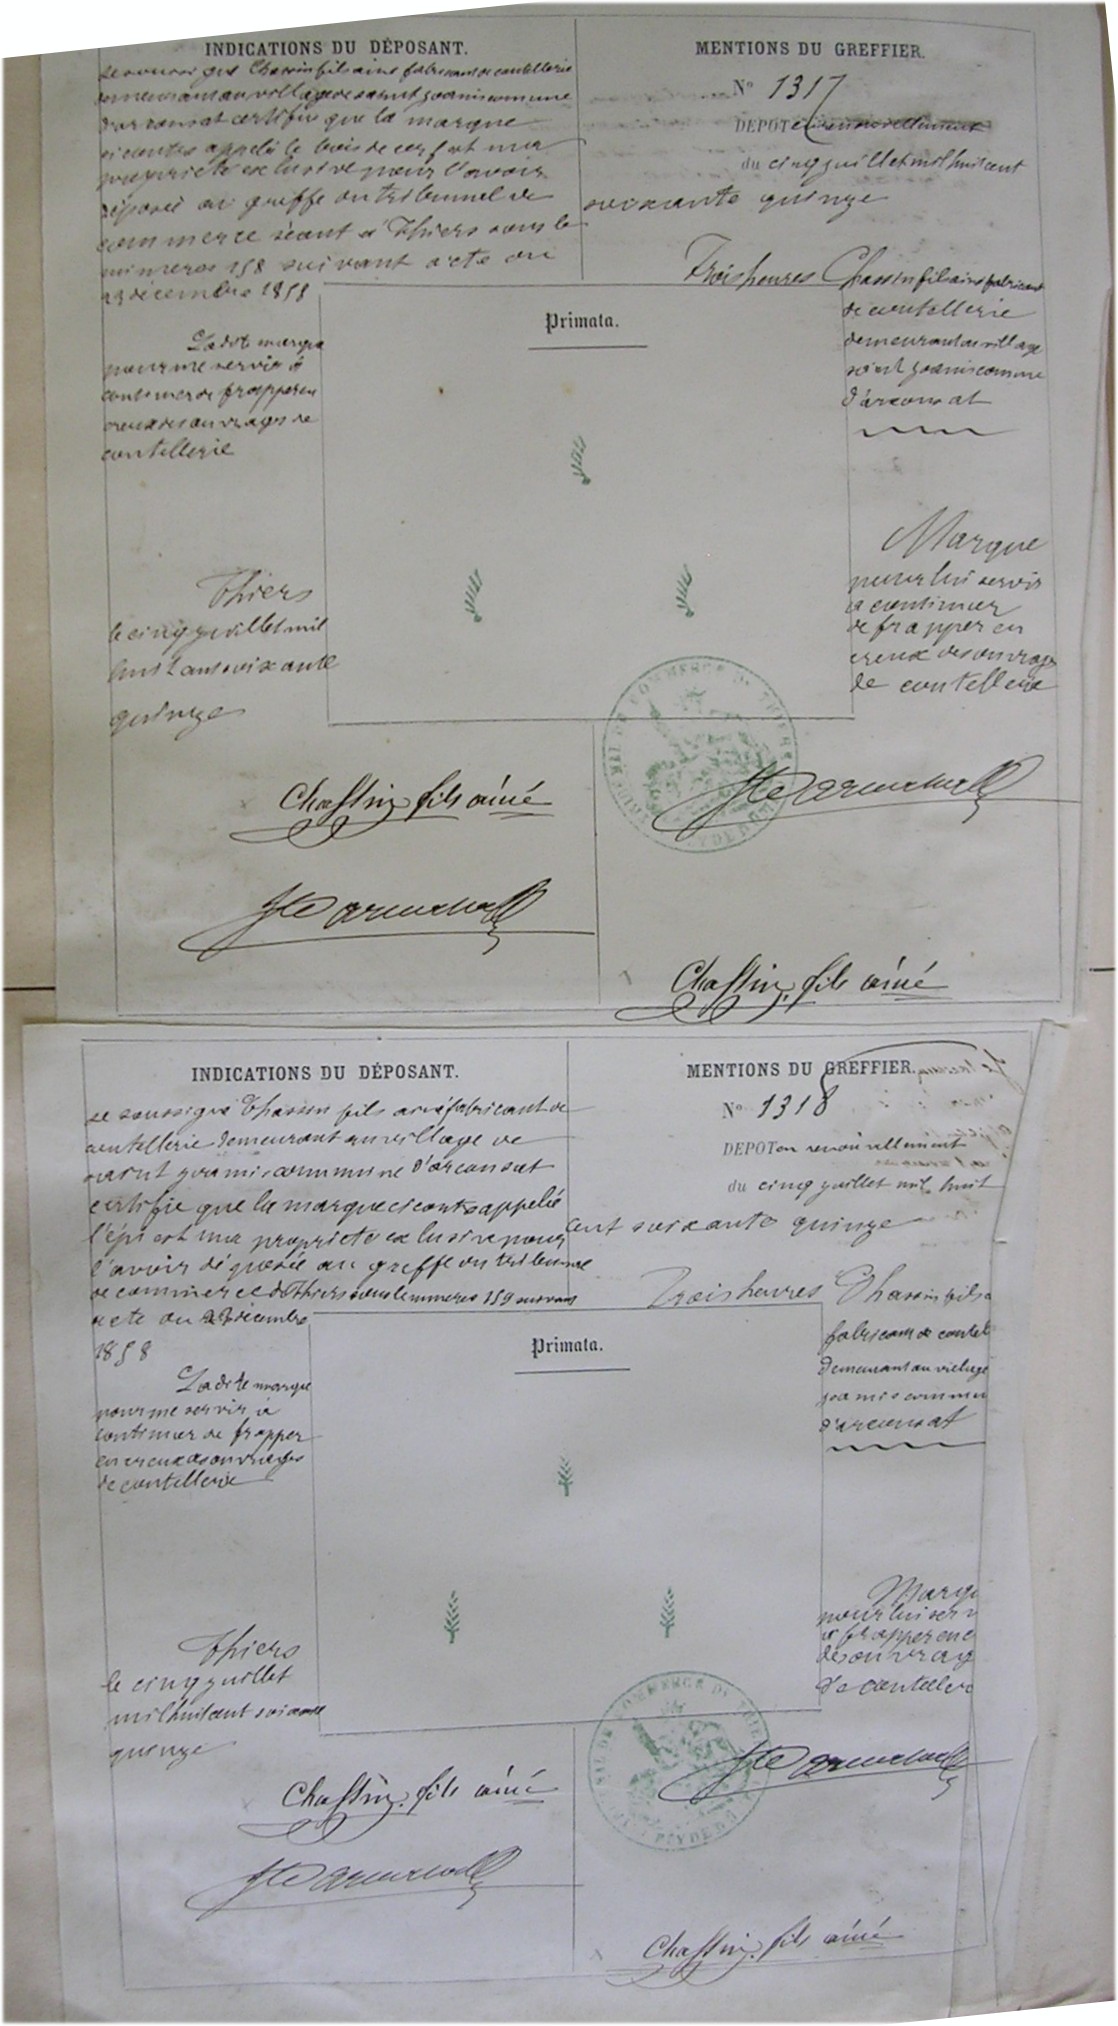 INDICATIONS DU DÉPOSANT.
Chassin fils ainé fabricant de coutellerie
demeurant au village de saint joanis commune
d'arconsat certifie que la marque
ci contre appelé le bois de cerf est ma
propriete exclusive pour l'avoir
déposée au greffe du tribunal de
commerce séant a Thiers sous le
numeros 158 suivant acte du
23 décembre 1858
La dite marque
pour me servir à
continuer de frapper en
creux des ouvrages de
coutellerie
Thiers
le cinq juillet mil
huit cent soixante
quinze
Chassin fils ainé
MENTIONS DU GREFFIER.
N° 1317
DEPOT en renouvellement
du cinq juillet mil huit cent
soixante quinze
Trois heures Chassin fils ainé fabricant
de coutellerie
demeurant au village
saint joanis commune
d'arconsat
Primata.
Marque
pour lui servir
a continuer
de frapper en
creux des ouvrages
de coutellerie
Chassin fils ainé
INDICATIONS DU DÉPOSANT.
Je soussigné Chassin fils ainé fabricant de
coutellerie demeurant au village de
saint joanis commune d'arconsat
certifie que la marque ci contre appelée
l'épi est ma propriete exclusive pour
l'avoir déposée au greffe du tribunal
de commerce de Thiers sous le numeros 159 suivant
acte du 23 décembre
1858
La dite marque
pour me servir à
continuer de frapper
en creux des ouvrages
de coutellerie
Thiers
le cinq juillet
mil huit cent soixante
quinze
Chassin fils ainé
MENTIONS DU GREFFIER.
N° 1318
DEPOT en renouvellement
du cinq juillet mil huit
cent soixante quinze
Trois heures Chassin fils a
fabricant de coutel
demeurant au village
joanis commun
d'arconsat
Primata.
Marq
pour lui serv
a frapper en c
des ouvrag
de couteller
Chassin fils ainé